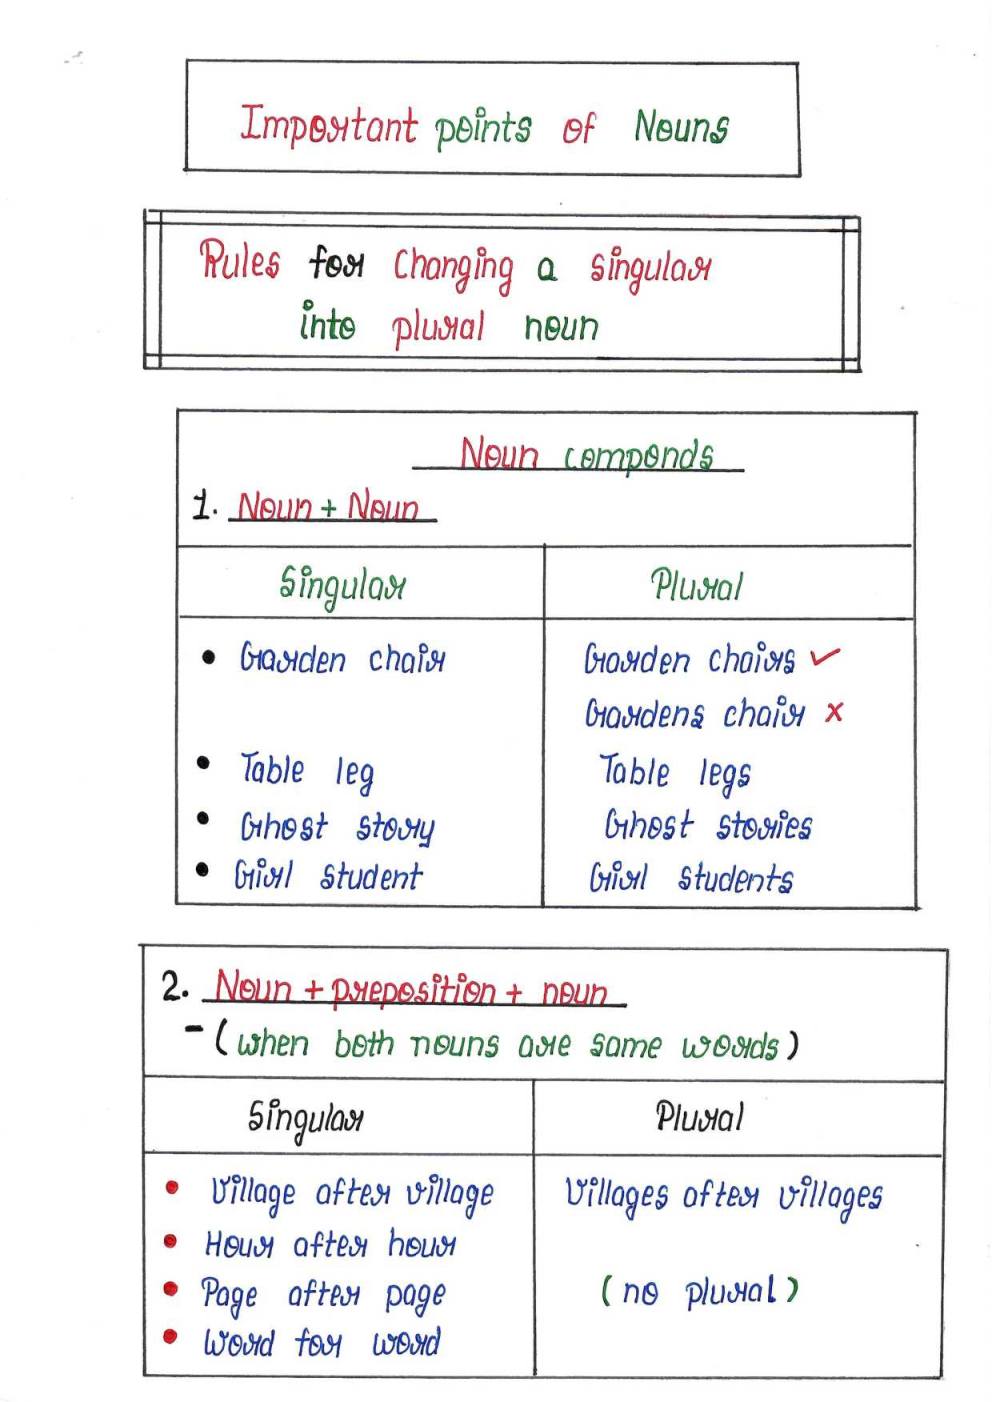 Important points of Nouns
Rules for Changing a singular
into plural noun
Noun componds
1. Noun + Noun
Singular Plural
• Garden chair Garden chairs ✓
Gardens chair ×
• Table leg Table legs
• Ghost story Ghost stories
• Girl student Girl students
2. Noun + preposition + noun
- (when both nouns are same words)
Singular Plural
• Village after village Villages after villages
• Hour after hour
• Page after page (no plural)
• Word for word